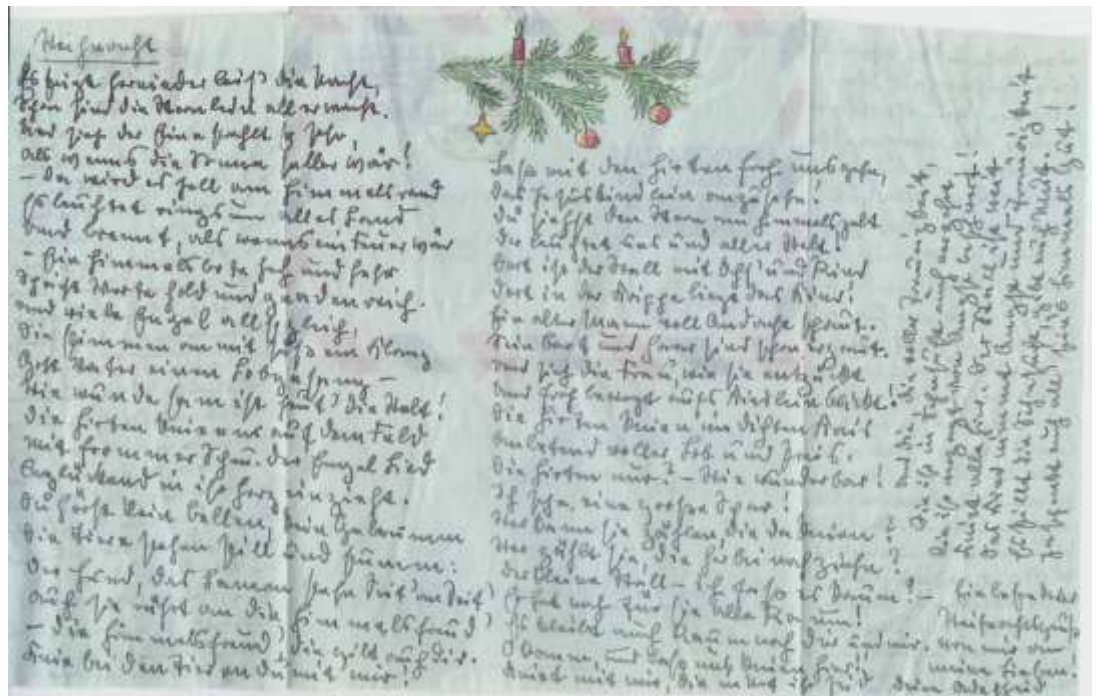 Weihnacht
Es steigt hernieder leis' die Nacht,
Schon sind die Sternlein all erwacht.
Und sieh der eine strahlt so sehr,
als wenns die Sonne selber wär!
– Da wird es hell am Himmelsrand
Es leuchtet rings um alles Land
Und brennt, als wenns ein Feuer wär
– Ein Himmelsbote hoch und hehr
Spricht Worte hold und gnadenreich.
und viele Engel all sogleich,
Die stimmen an mit süßem Klang
Gott Vater einen Lobgesang –
Wie wundersam ist heut' die Welt!
Die Hirten knieen auf dem Feld
Mit frommer Scheu. Der Engel Lied
Beglückend in ihr Herz einzieht.
Du hörst kein Bellen, kein Gebrumm
Die Tiere stehen still und stumm:
Der Hund, das Lamm stehn Seit' an Seit'
auch sie rührt an die Himmelsfreud'
– die Himmelsfreud' die gilt auch dir.
Knie bei den Tieren du mit mir!
Lass mit den Hirten froh uns gehn,
Das Jesuskindlein anzusehn!
Du siehst den Stern am Himmelszelt
Der leuchtet uns und aller Welt!
Dort ist der Stall mit Ochs' und Rind
Dort in der Krippe liegt das Kind!
Ein alter Mann voll Andacht schaut.
Sein Bart und Haar sind schon ergraut.
und sieh die Frau, wie sie entzückt
Und froh bewegt aufs Kindlein blickt!
Die Hirten knien im dichten Kreis
anbetend voller Lob und Preis.
Die Hirten nur? – Wie wunderbar!
Ich sehe eine große Schar!
Wer kann sie zählen die da knien?
Wer zählt sie, die herbei noch ziehn?
Der kleine Stall – ich fass es kaum! –
Er hat noch für sie alle Raum!
Es bleibt auch Raum noch dir und mir.
O komm, und lass uns knien hier!
Kniet mit mir, die
Und die voller Traurigkeit,
Die ist in Sehnsucht
Die ist von Angst beschwert!
Kniet alle hier. Der Stall ist weit
Das Kind nimmt Angst und Traurigkeit
Es stillt die Sehnsucht,
geschenkt
Ein lieber
Weihnachtsgruß
von mir an
meine lieben.